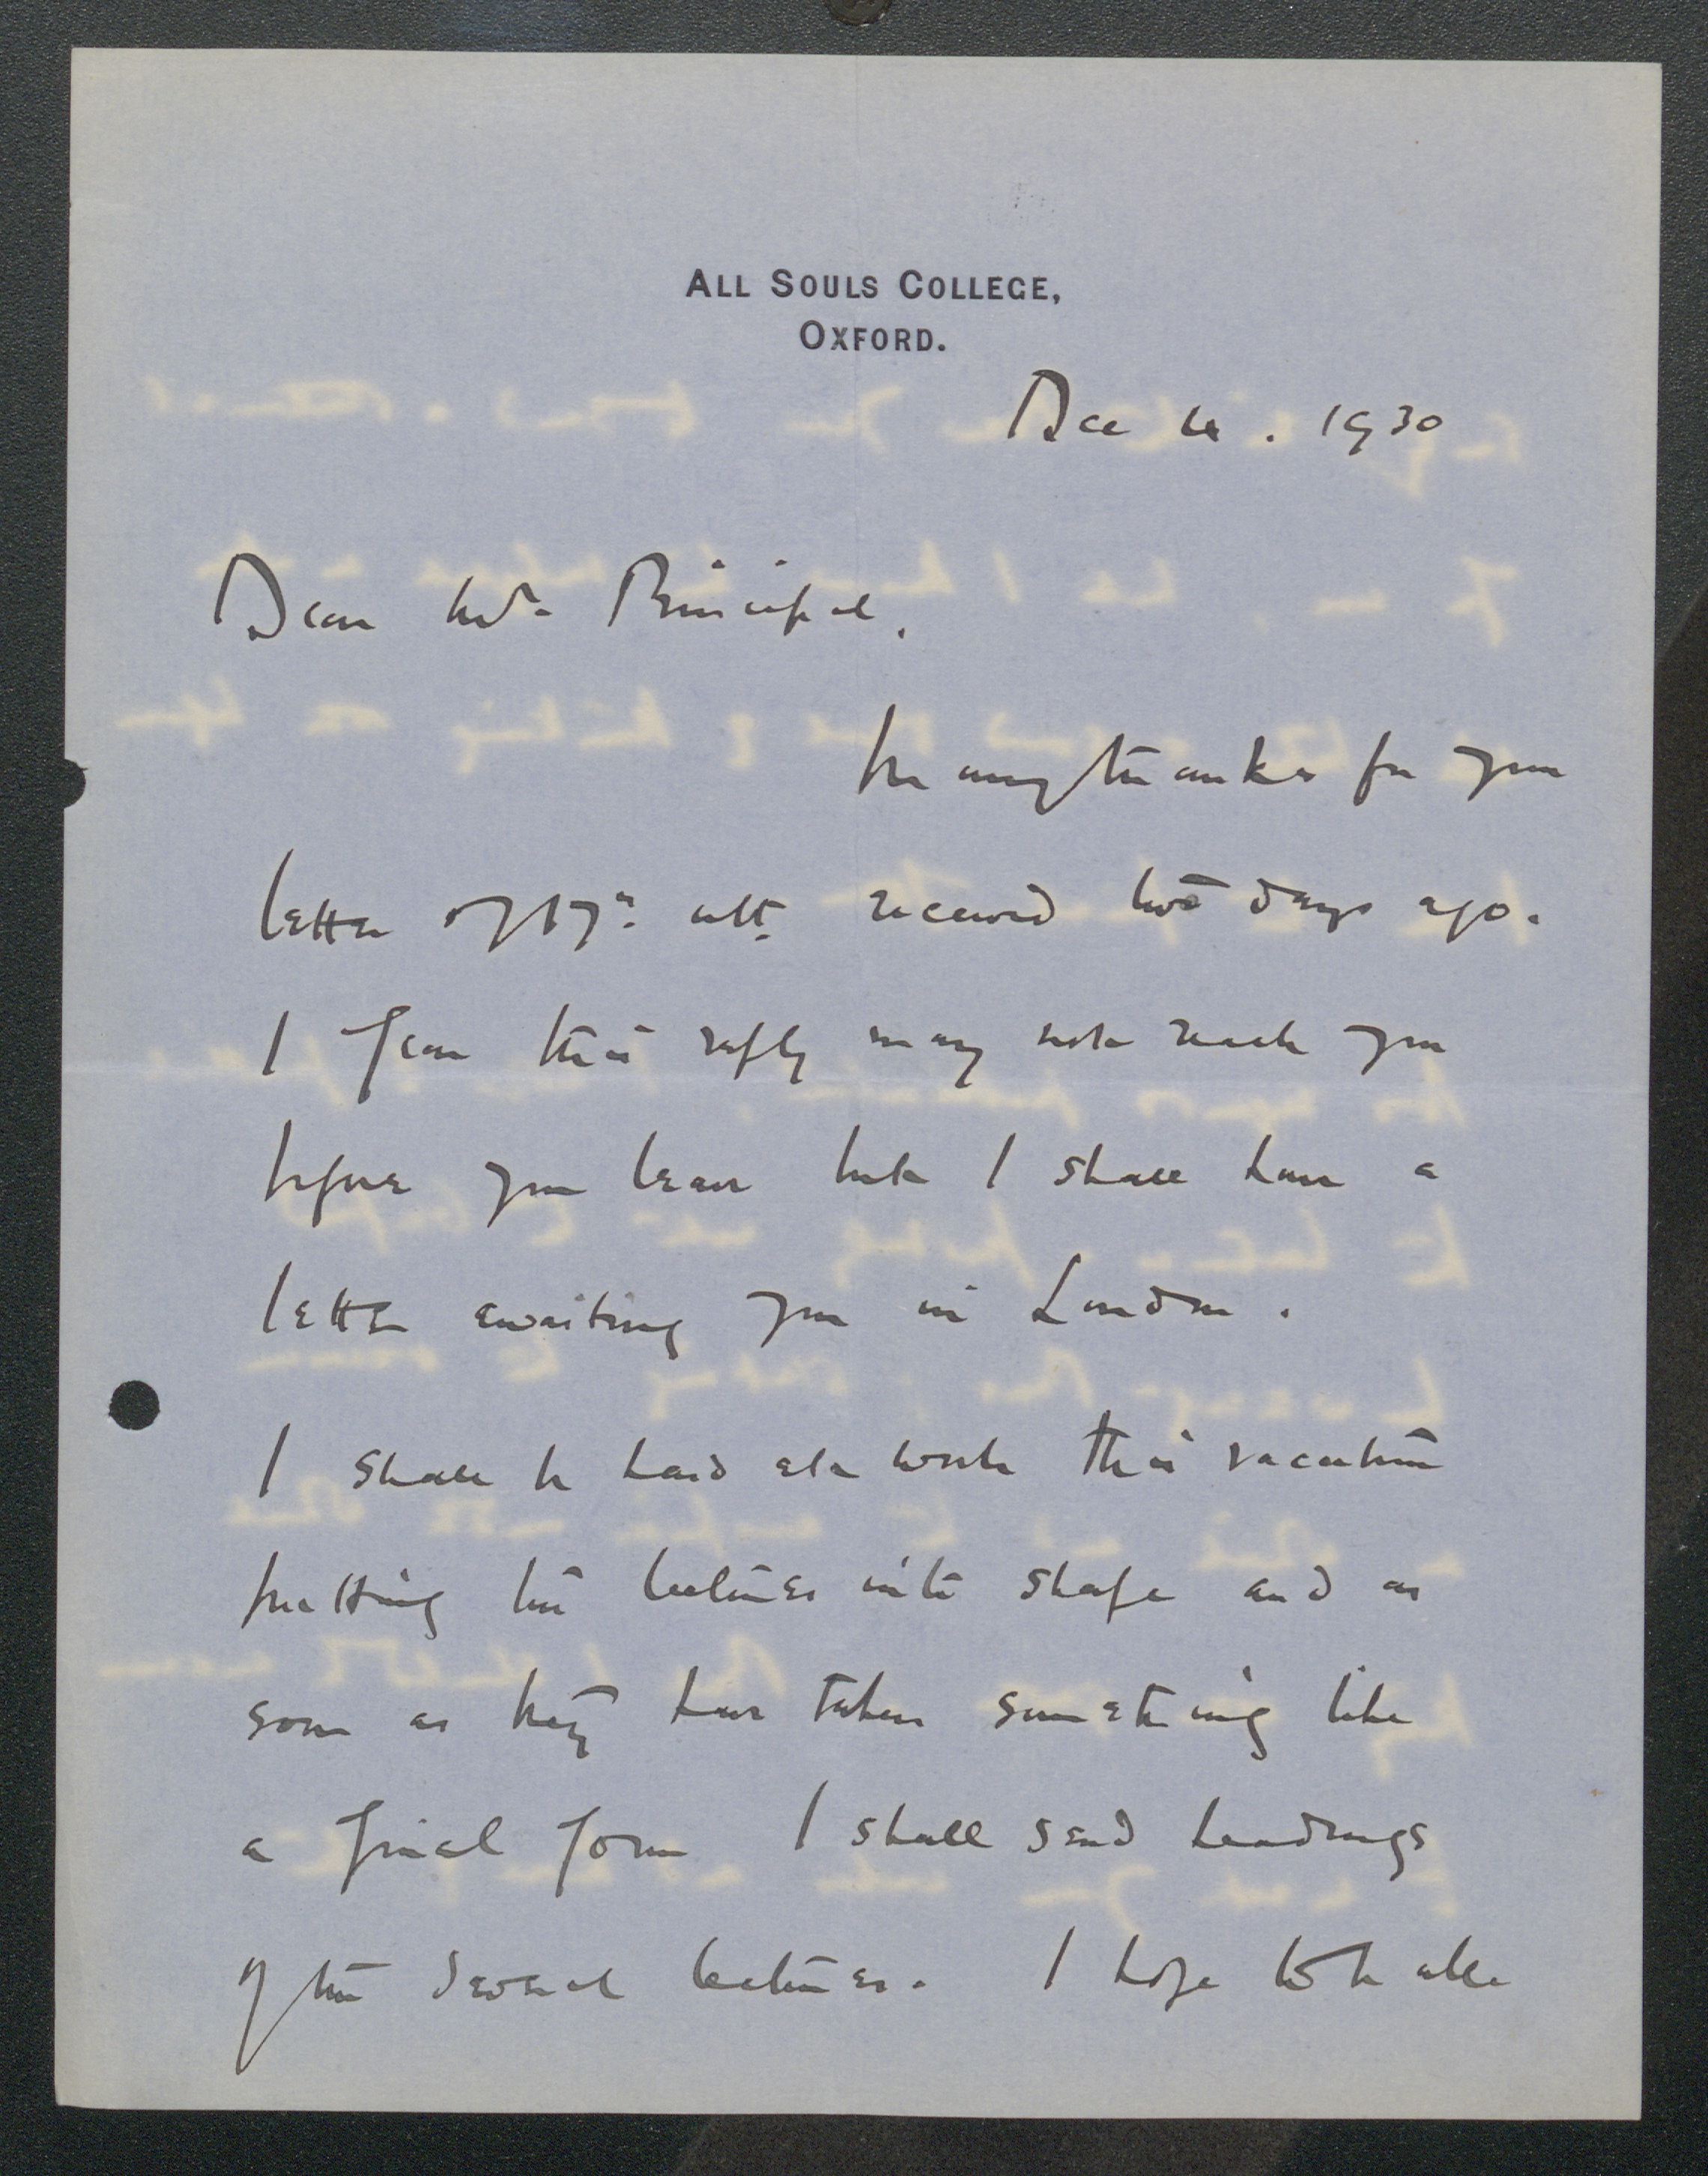 ALL SOULS COLLEGE,
OXFORD.
Dec 4. 1930
Dear Mr. Principal,
Many thanks for your
letter of 17th ult. received two days ago.
I fear this reply may not reach you
before you leave but I shall have a
letter awaiting you in London.
I shall be hard at work this vacation
putting the lectures into shape and as
soon as they have taken something like
a final form I shall send headings
of the several lectures. I hope to be able